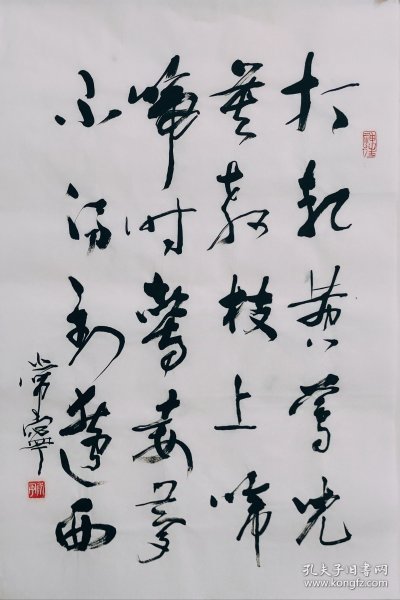 打起黄莺兒
莫教枝上啼
啼时驚妾夢
不得到遼西
常寧
孔夫子旧书网
www.kongfz.com